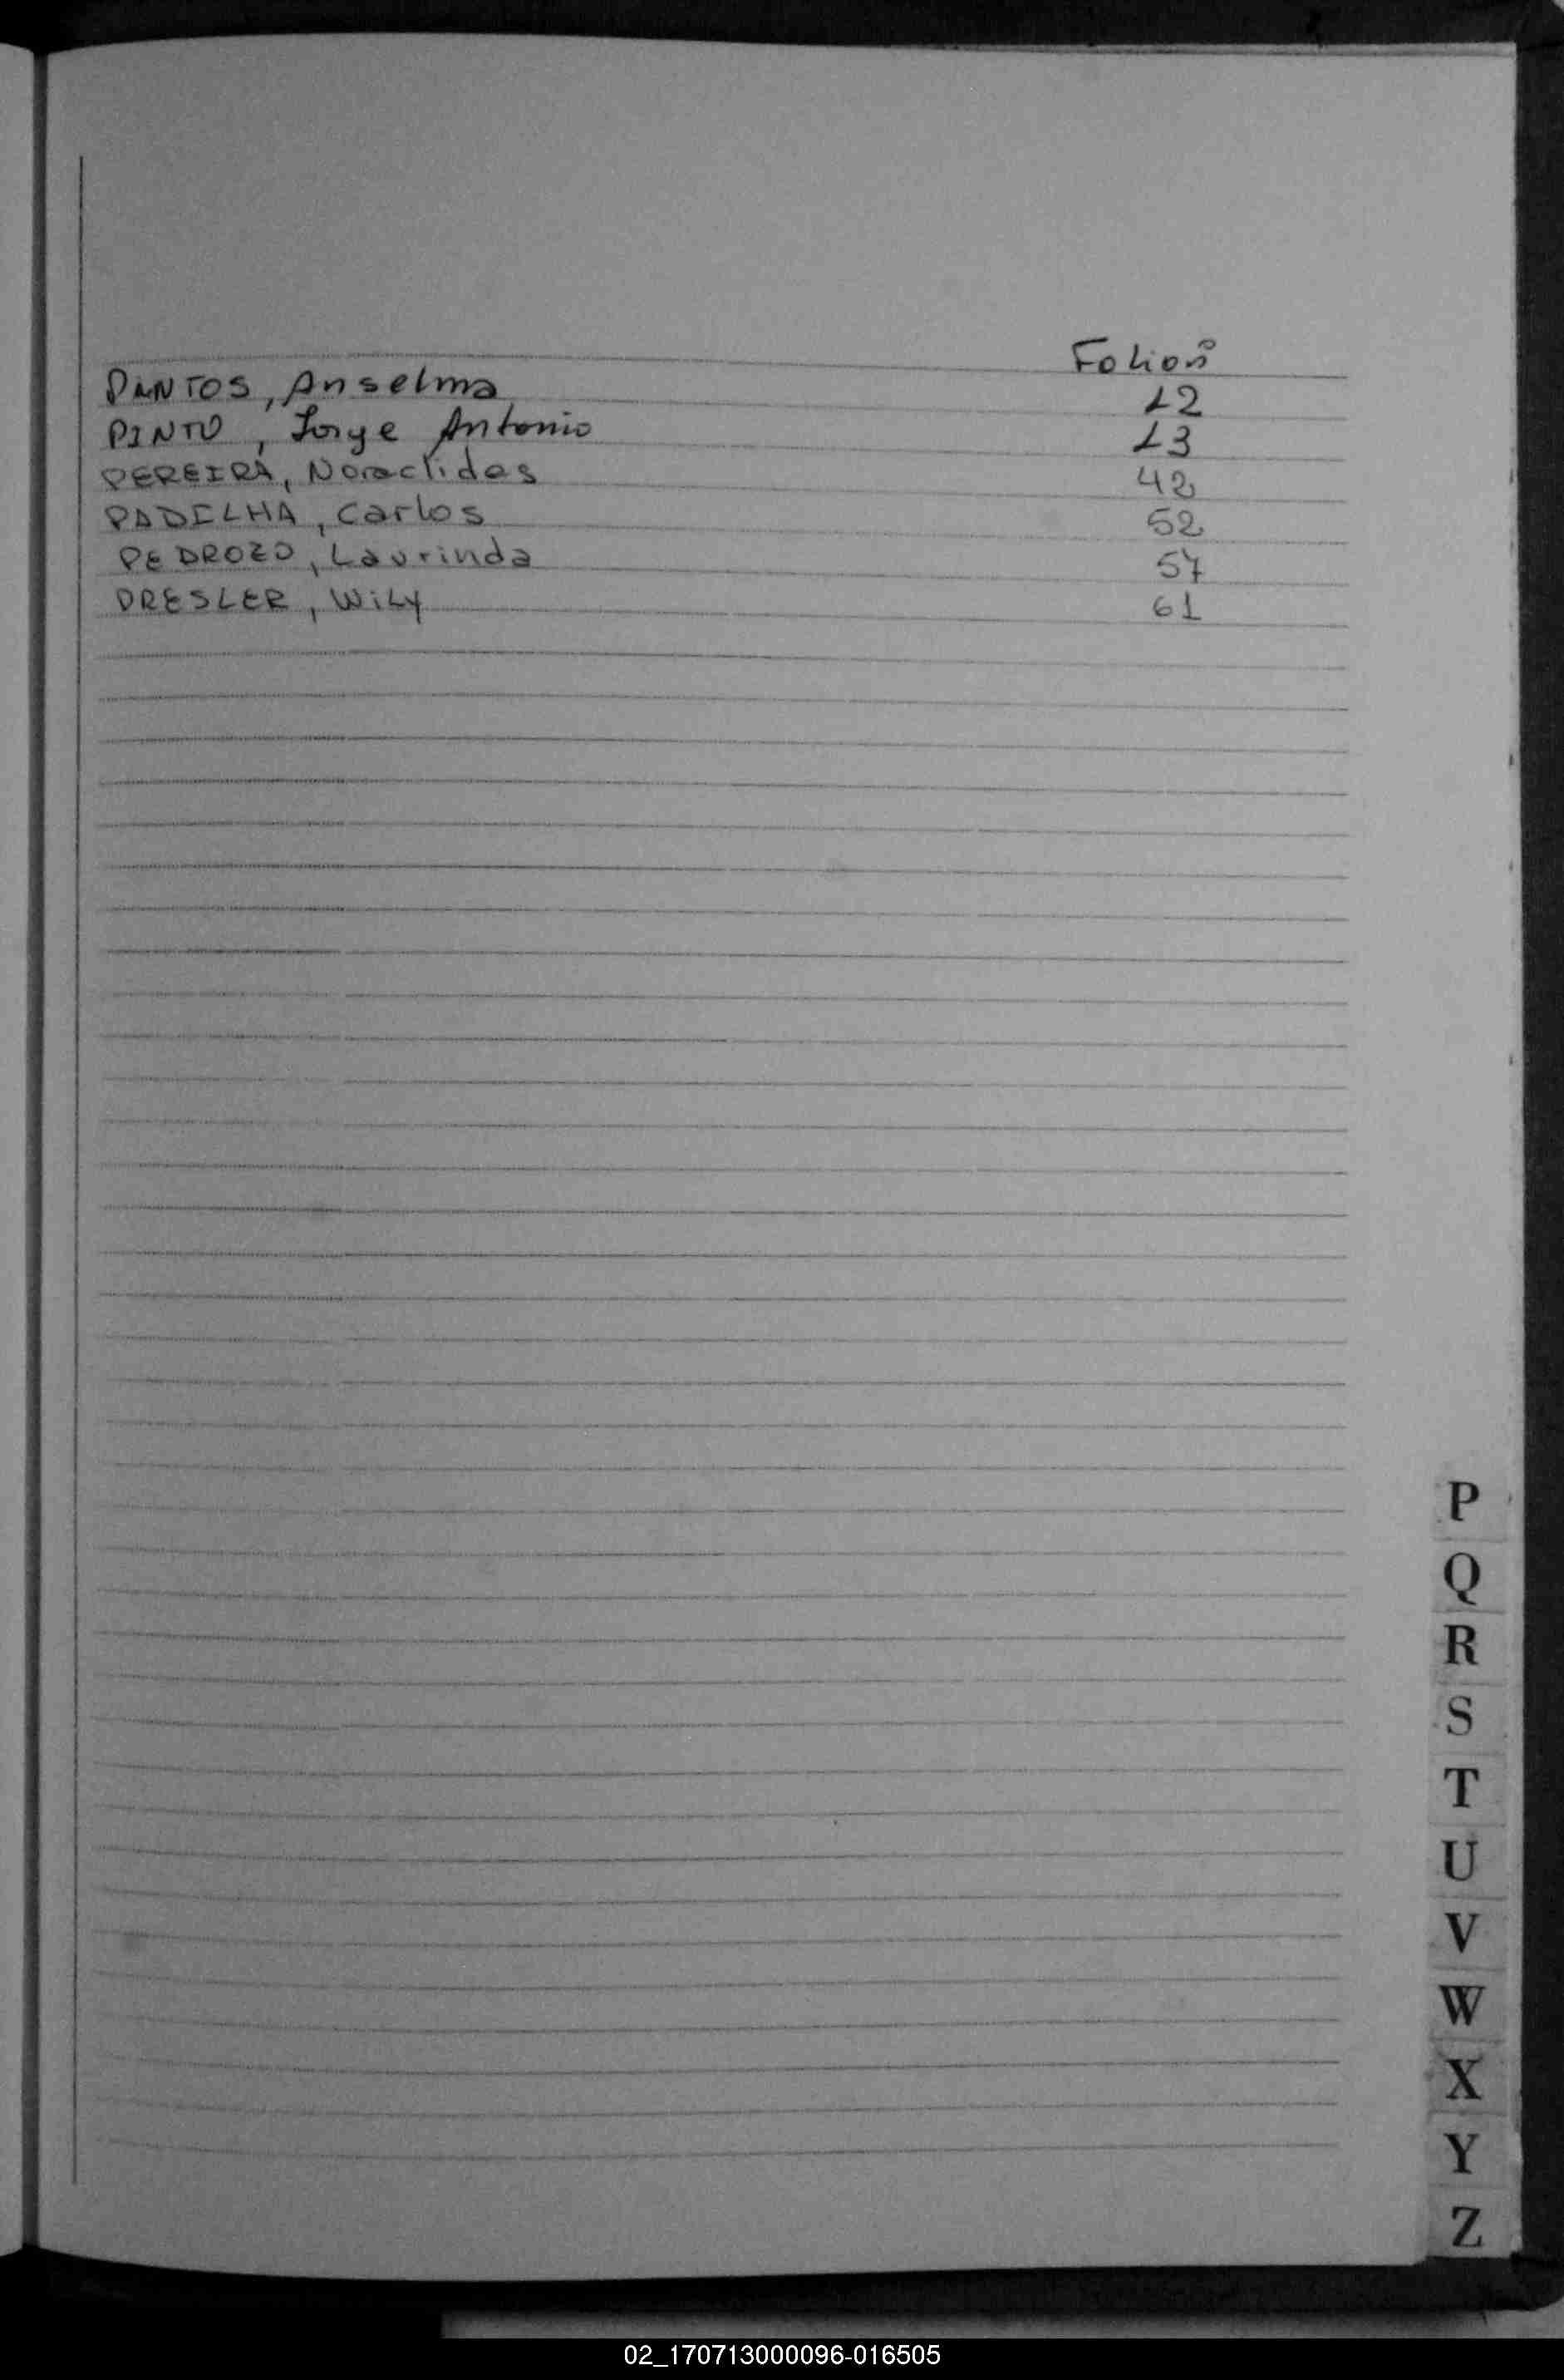 Folioˢ
PANTOS, Anselma 12
PINTO, Jorge Antonio 13
PEREIRA, Noraclides 42
PADILHA, Carlos 52
PEDROZO, Laurinda 57
PRESLER, WiLy 61
P
Q
R
S
T
U
V
W
X
Y
Z
02_170713000096-016505